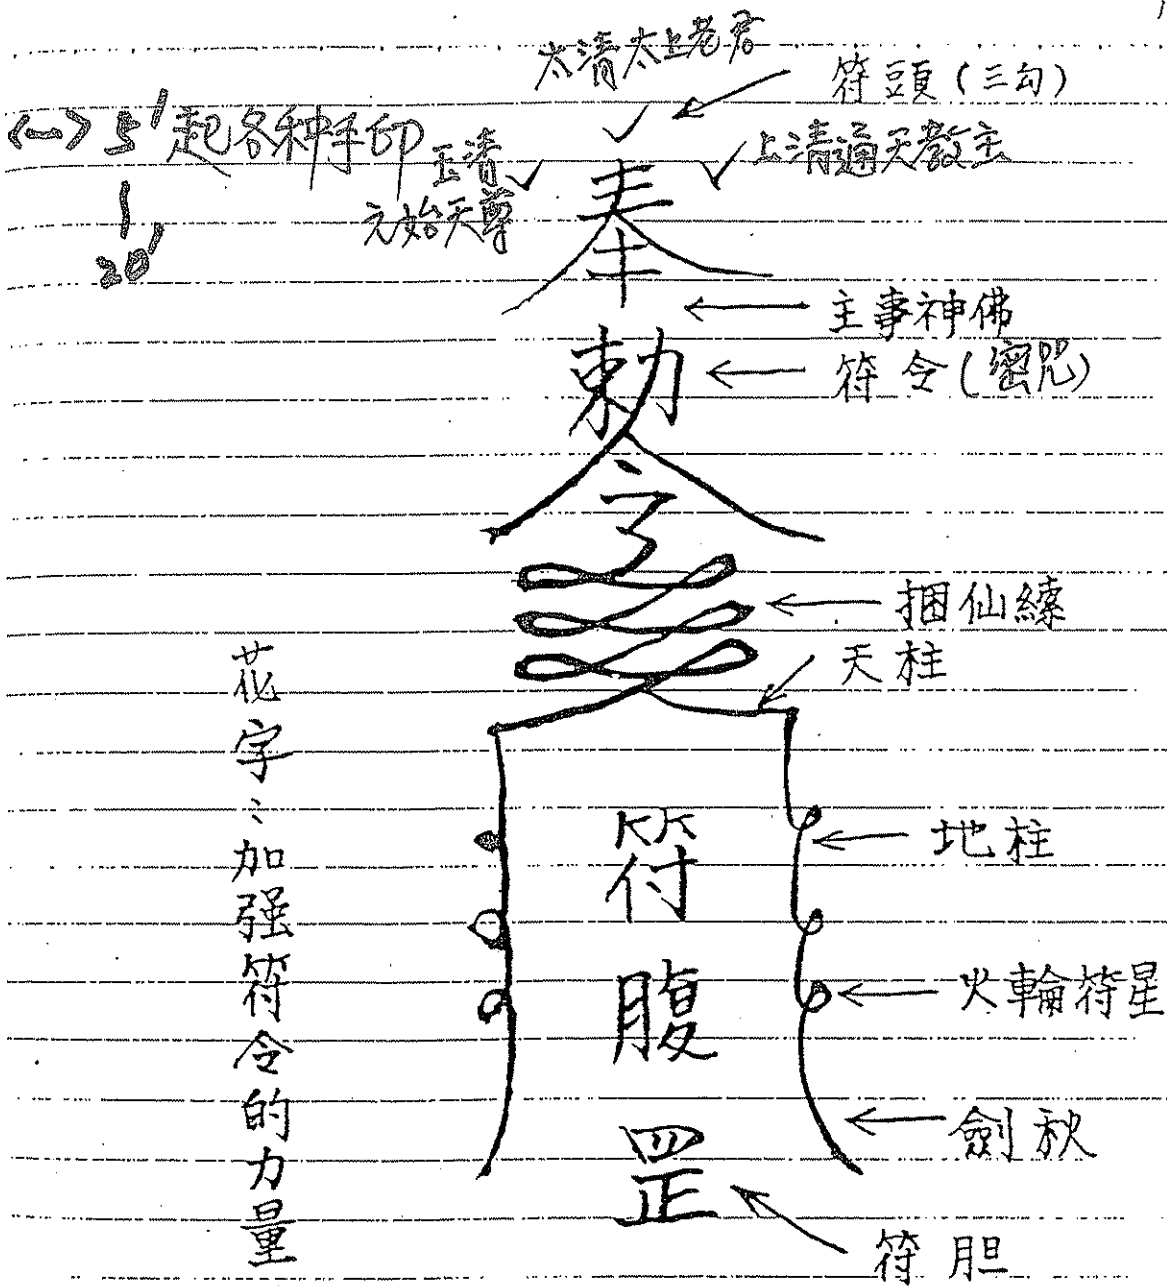 太清太上老君
符頭（三勾）
<一> 5' 起各种手印
20'
玉清
元始天尊
上清通天教主
奉
主事神佛
勅
符令(密咒)
令
捆仙練
天柱
花字：加强符令的力量
地柱
符
腹
火輪符星
劍秋
罡
符胆